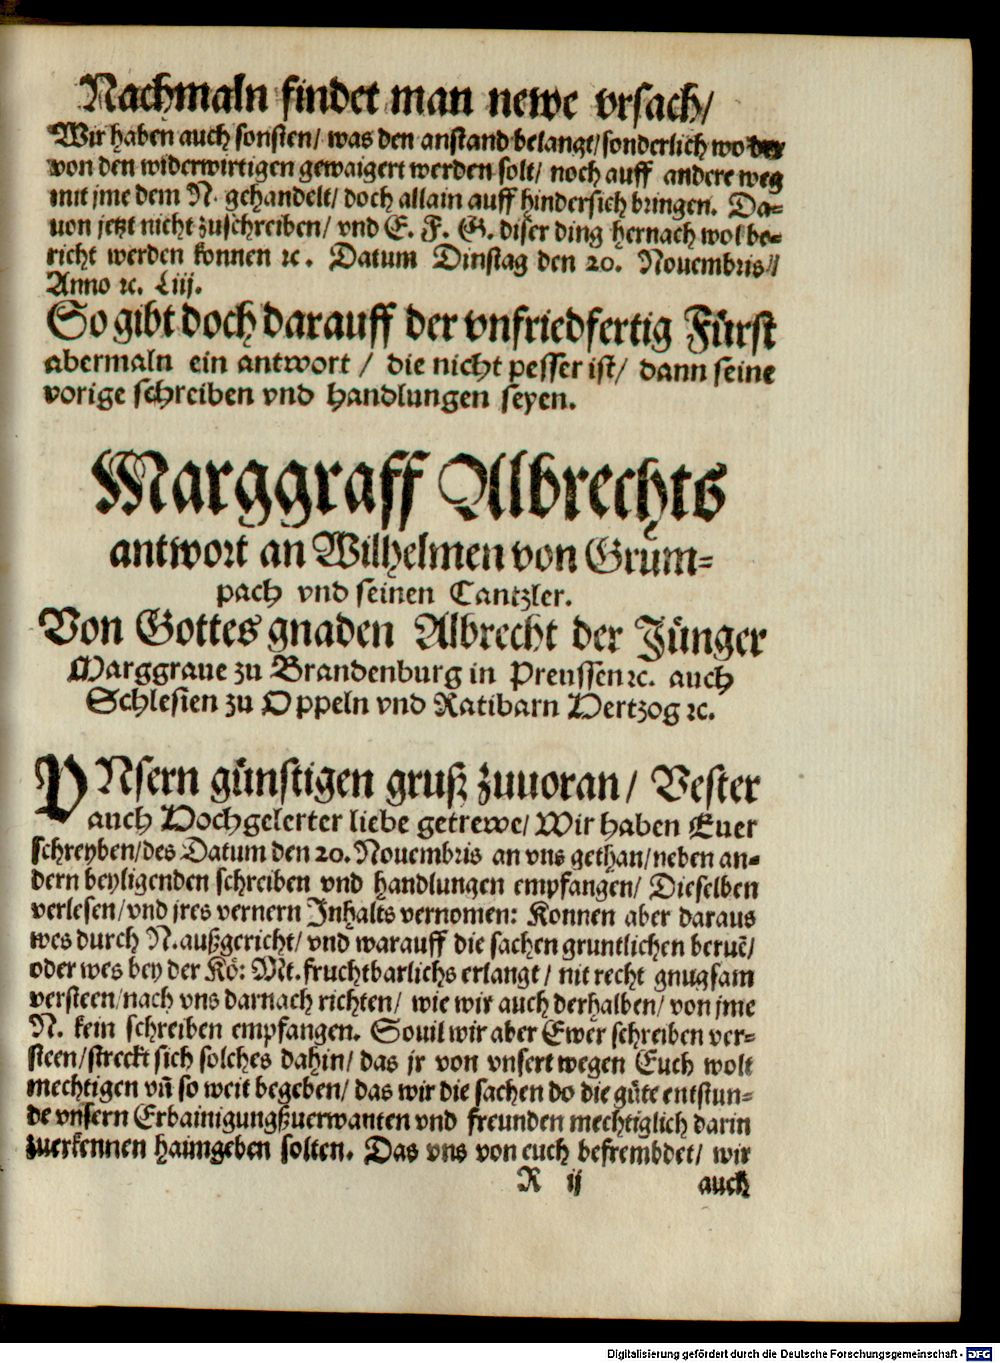 Nachmaln findet man newe vrsach/
Wir haben auch sonsten/ was den anstand belangt/ sonderlich wo der
von den widerwirtigen gewaigert werden solt/ noch auff andere weg
mit jme dem N. gehandelt/ doch allain auff hindersich bringen. Da=
uon jetzt nicht zuschreiben/ vnd E. F. G. diser ding hernach wol be=
richt werden konnen ꝛc. Datum Dinstag den 20. Nouembris//
Anno ꝛc. Liij.
So gibt doch darauff der vnfriedfertig Fürst
abermaln ein antwort / die nicht pesser ist/ dann seine
vorige schreiben vnd handlungen seyen.
Marggraff Albrechts
antwort an Wilhelmen von Grum=
pach vnd seinen Cantzler.
Von Gottes gnaden Albrecht der Jünger
Marggraue zu Brandenburg in Preussen ꝛc. auch
Schlesien zu Oppeln vnd Ratibarn Hertzog ꝛc.
VNsern günstigen gruß zuuoran/ Vester
auch Hochgelerter liebe getrewe/ Wir haben Euer
schreyben/ des Datum den 20. Nouembris an vns gethan/ neben an=
dern beyligenden schreiben vnd handlungen empfangen/ Dieselben
verlesen/ vnd jres vernern Inhalts vernomen: Konnen aber daraus
wes durch N. außgericht/ vnd warauff die sachen gruntlichen beruē/
oder wes bey der Kö: Mt. fruchtbarlichs erlangt/ nit recht gnugsam
versteen/ nach vns darnach richten/ wie wir auch derhalben/ von jme
N. kein schreiben empfangen. Souil wir aber Ewer schreiben ver=
steen/ streckt sich solches dahin/ das jr von vnsert wegen Euch wolt
mechtigen vn̄ so weit begeben/ das wir die sachen do die güte entstun=
de vnsern Erbainigungßuerwanten vnd freunden mechtiglich darin
zuerkennen haimgeben solten. Das vns von euch befrembdet/ wir
R ij auch
Digitalisierung gefördert durch die Deutsche Forschungsgemeinschaft - DFG